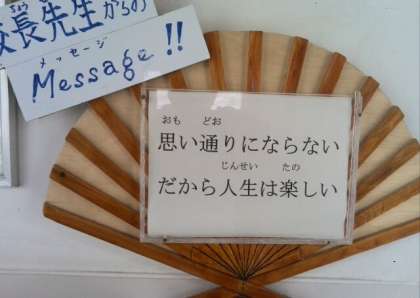 ちょう
校長先生からの
メッセージ
Message!!
おも どお
思い通りにならない
じんせい たの
だから人生は楽しい